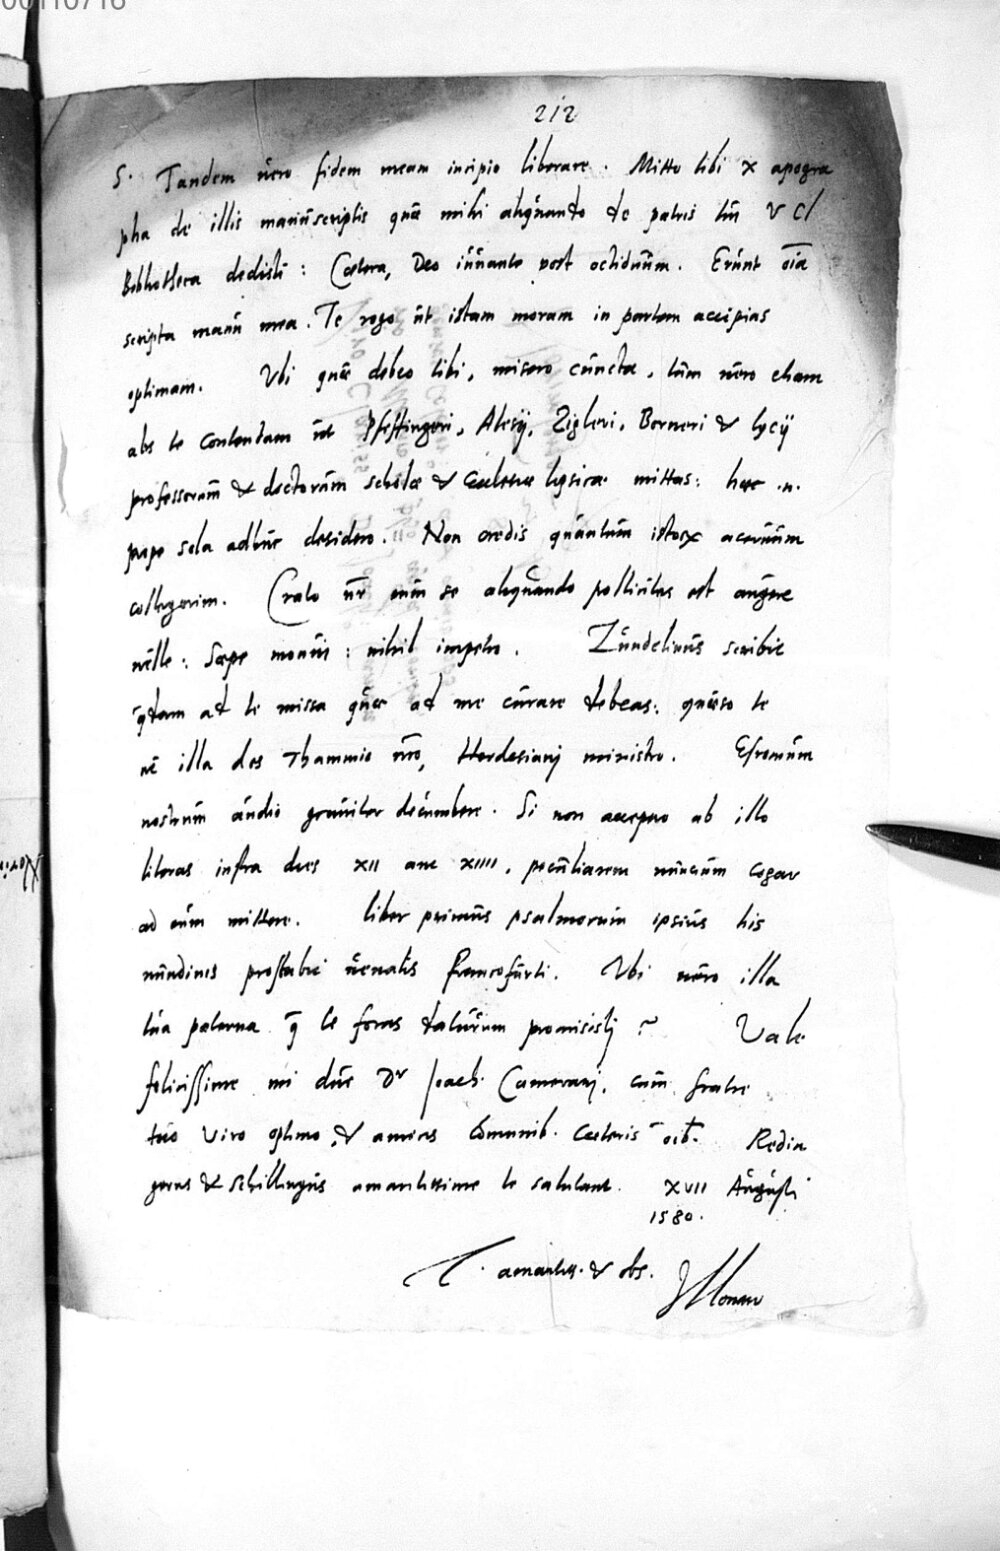 00110716
212
S. Tandem vero fidem meam incipio liberare. Mitto tibi x apogra
pha de illis manuscriptis quae mihi aliquando de patris tui V Cl
Bibliotheca dedisti: Caetera, Deo iuvante post octiduum. Erunt oīa
scripta manu mea. Te rogo ut istam moram in partem accipias
optimam. Ubi quae debeo tibi, misero cuncta, tum vero etiam
abs te contendam ut Pfeffingeri, Alesij, Zigleri, Borneri & lycij
professorum & doctorum scholae & Ecclesiae lipsicae mittas: haec .n.
prope sola adhuc desidero. Non credis quantum istorx acervum
collegerim. Crato nr eum se aliquando pollicitus est augere
velle: Saepe monui: nihil impetro. Zundelinus scribit
qdam ad te missa quae ad me curare debeas: quaeso te
ut illa des Thammio nro, Herdesianj ministro. Esromum
nostrum audio graviter decumbere. Si non accepero ab illo
literas infra dies XII aut XIIII, peculiarem nuncium cogar
ad eum mittere. liber primus psalmorum ipsius his
nundinis prostabit venalis francofurti. Ubi vero illa
tua paterna q te foras daturum promisistj? Vale
felicissime mi dne Dr Joach. Camerarj, cum fratre
tuo viro optimo, & amicis Comunib. Caeteris oib. Redin
gerus & Schillingus amantissime te salutant. XVII Augusti
1580.
T. amantiss. & obs. JMonaw